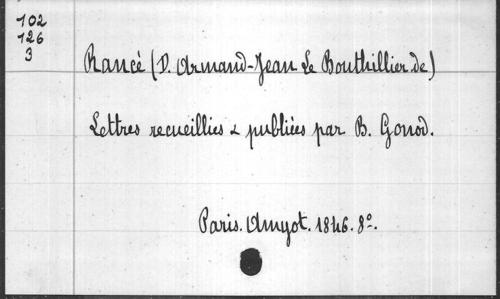 102
126
3
Rancé (D. Armand-Jean Le Bouthillier de)
Lettres recueillies & publiées par B. Gonod.
Paris. Amyot. 1846. 8°.